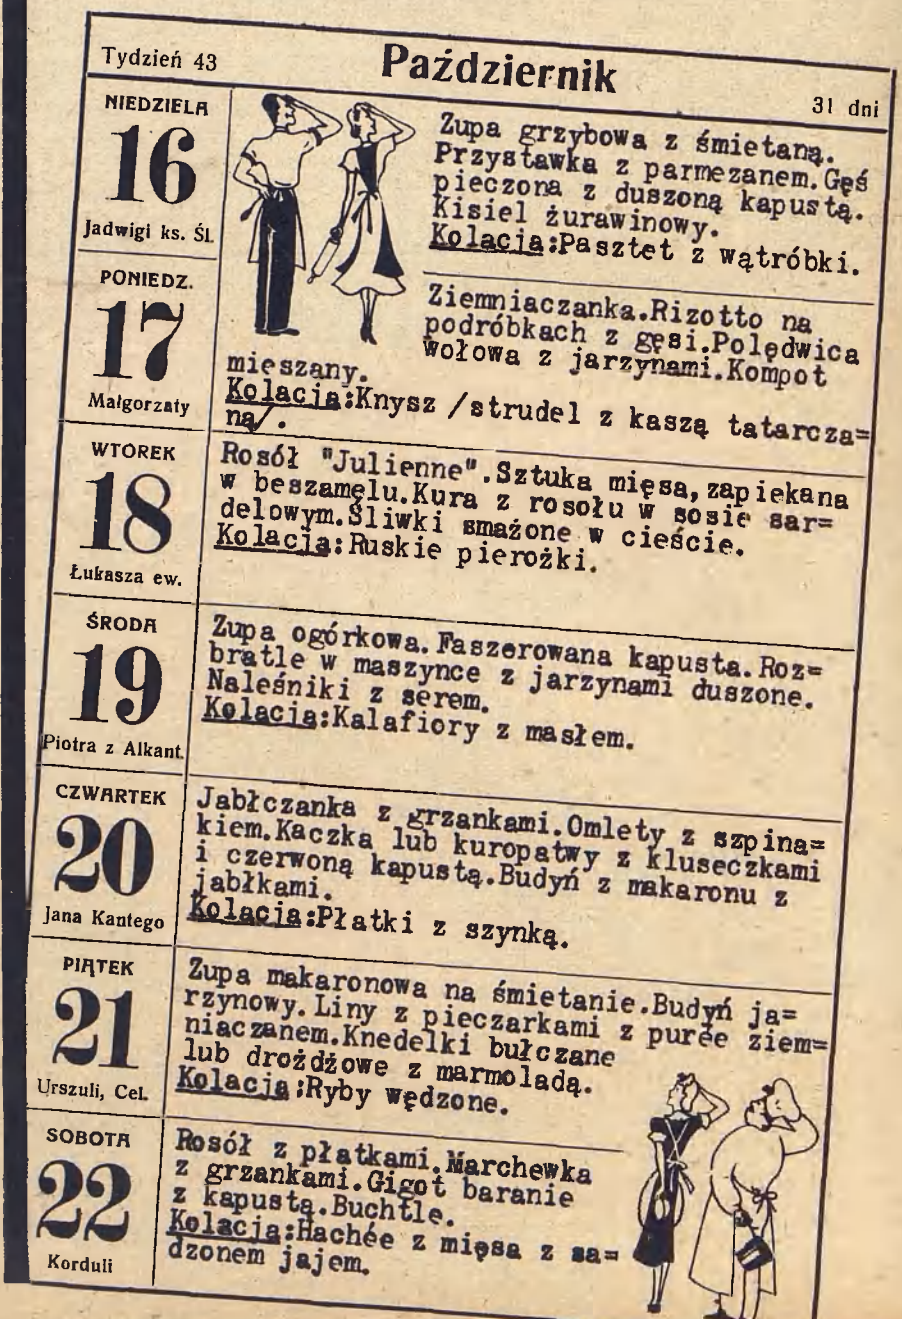 Tydzień 43
Październik
31 dni
NIEDZIELA
16
Jadwigi ks. Śl.
Zupa grzybowa z śmietaną.
Przystawka z parmezanem.Gęś
pieczona z duszoną kapustą.
Kisiel żurawinowy.
Kolacja:Pasztet z wątróbki.
PONIEDZ.
17
Małgorzaty
Ziemniaczanka.Rizotto na
podróbkach z gęsi.Polędwica
wołowa z jarzynami.Kompot
mieszany.
Kolacja:Knysz /strudel z kaszą tatarcza=
ną/.
WTOREK
18
Łukasza ew.
Rosół "Julienne".Sztuka mięsa,zapiekana
w beszamelu.Kura z rosołu w sosie sar=
delowym.Śliwki smażone w cieście.
Kolacja:Ruskie pierożki.
ŚRODA
19
Piotra z Alkant.
Zupa ogórkowa.Faszerowana kapusta.Roz=
bratle w maszynce z jarzynami duszone.
Naleśniki z serem.
Kolacja:Kalafiory z masłem.
CZWARTEK
20
Jana Kantego
Jabłczanka z grzankami.Omlety z szpina=
kiem.Kaczka lub kuropatwy z kluseczkami
i czerwoną kapustą.Budyń z makaronu z
jabłkami.
Kolacja:Płatki z szynką.
PIĄTEK
21
Urszuli, Cel.
Zupa makaronowa na śmietanie.Budyń ja=
rzynowy.Liny z pieczarkami z purée ziem=
niaczanem.Knedelki bułczane
lub drożdżowe z marmoladą.
Kolacja:Ryby wędzone.
SOBOTA
22
Korduli
Rosół z płatkami.Marchewka
z grzankami.Gigot baranie
z kapustą.Buchtle.
Kolacja:Hachée z mięsa z sa=
dzonem jajem.